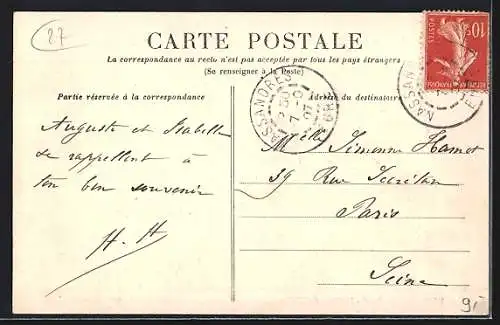 27
CARTE POSTALE
La correspondance au recto n'est pas acceptée par tous les pays étrangers
(Se renseigner à la Poste)
Partie réservée à la correspondance
Adresse du destinataire
Auguste et Isabelle
se rappellent à
ton bon souvenir
H. H
Melle Simonne Hamot
39 Rue Secrétan
Paris
Seine
NASSANDRES
EURE
NASSAN
10
POSTES
9